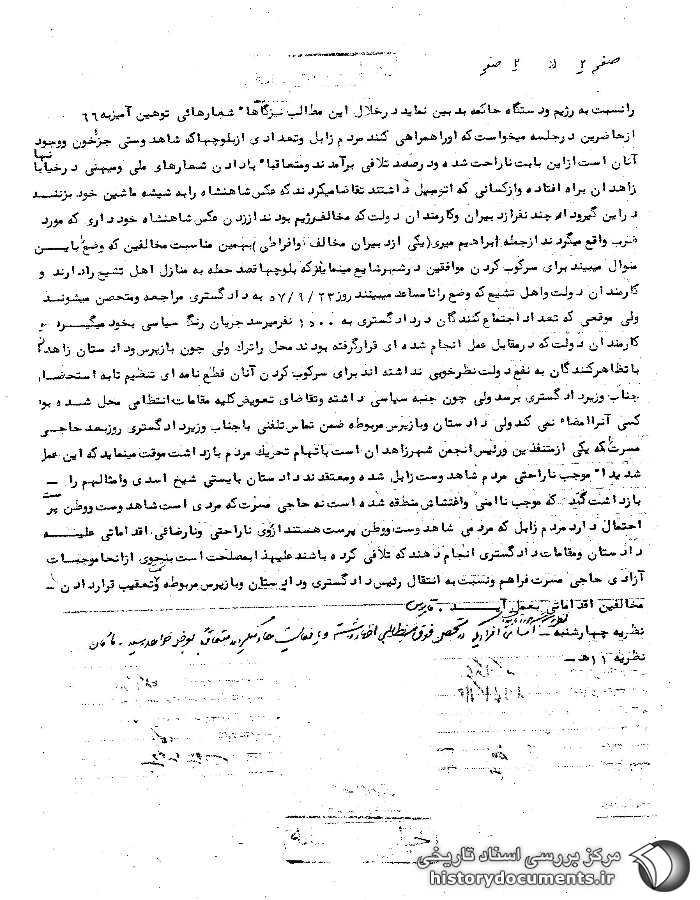 صفحه ۲ از ۲ صفحه
را نسبت به رژیم و دستگاه حاکمه بدبین نماید در خلال این مطالب شعارهائی توهین آمیز به ۶۶
از حاضرین در جلسه میخواست که او را همراهی کنند مردم زابل و تعدادی از بلوچها که شاهدوستی جز خون و وجود
آنان است از این بابت ناراحت شده و در صدد تلافی برآمدند و متعاقبا" با دادن شعارهای ملی و میهنی در خیابا نها
زاهدان براه افتاده و از کسانی که اتومبیل داشتند تقاضا میکردند که عکس شاهنشاه را به شیشه ماشین خود بزنند
در این گیرودار چند نفر از دبیران و کارمندان دولت که مخالف رژیم بودند از زدن عکس شاهنشاه خودداری که مورد
ضرب واقع میگردند از جمله ابراهیم میری (یکی از دبیران مخالف و افراطی) بهمین مناسبت مخالفین که وضع باین
منوال میبیند برای سرکوب کردن موافقین در شهر شایع مینمایند که بلوچها قصد حمله به منازل اهل تشیع را دارند و
کارمندان دولت و اهل تشیع که وضع را نامساعد میبینند روز ۵۷/۹/۲۳ به دادگستری مراجعه و متحصن میشوند
ولی موقعی که تعداد اجتماع کنندگان در دادگستری به ۱۵۰۰ نفر میرسد جریان رنگ سیاسی بخود میگیرد و
کارمندان دولت که در مقابل عمل انجام شده ای قرار گرفته بودند محل را ترک ولی چون بازپرس و دادستان زاهدان
با تظاهرکنندگان به نفع دولت نظر خوبی نداشته اند برای سرکوب کردن آنان قطع نامه ای تنظیم تا به استحضار
جناب وزیر دادگستری برسد ولی چون جنبه سیاسی داشته و تقاضای تعویض کلیه مقامات انتظامی محل شده بود
کسی آنرا امضاء نمی کند ولی دادستان و بازپرس مربوطه ضمن تماس تلفنی با جناب وزیر دادگستری روز بعد حاجی
مسرت که یکی از متنفذین و رئیس انجمن شهر زاهدان است باتهام تحریک مردم بازداشت موقت مینماید که این عمل
شدیدا" موجب ناراحتی مردم شاهدوست زابل شده و معتقدند دادستان بایستی شیخ اسدی و امثالهم را -
بازداشت کند که موجب ناامنی و اغتشاش منطقه شده است نه حاجی مسرت که مردی است شاهدوست و وطن پرست
احتمال دارد مردم زابل که مردمی شاهدوست و وطن پرست هستند از روی ناراحتی و نارضائی اقداماتی علیه
دادستان و مقامات دادگستری انجام دهند که تلافی کرده باشند علیهذا بمصلحت است بنحوی از انحا موجبات
آزادی حاجی مسرت فراهم و نسبت به انتقال رئیس دادگستری و دادستان و بازپرس مربوطه و تعقیب قرار دادن -
مخالفین اقداماتی بعمل آید. فارس
نظریه چهارشنبه - اسامی افرادیکه در تحصن فوق
نظریه ۱۱ هـ -
مرکز بررسی اسناد تاریخی
historydocuments.ir